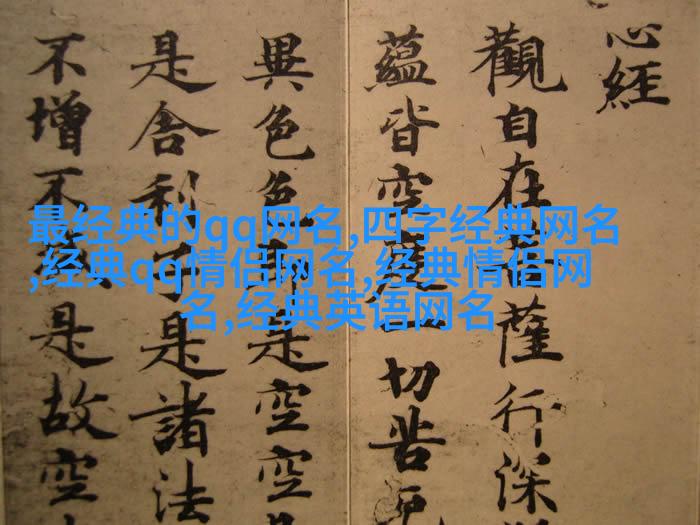 心經
觀自在菩薩行深
蘊皆空度一切苦厄
異色色是空空
是舍利子是諸法
不增不是故空
最经典的qq网名,四字经典网名
,经典qq情侣网名,经典情侣网
名,经典英语网名